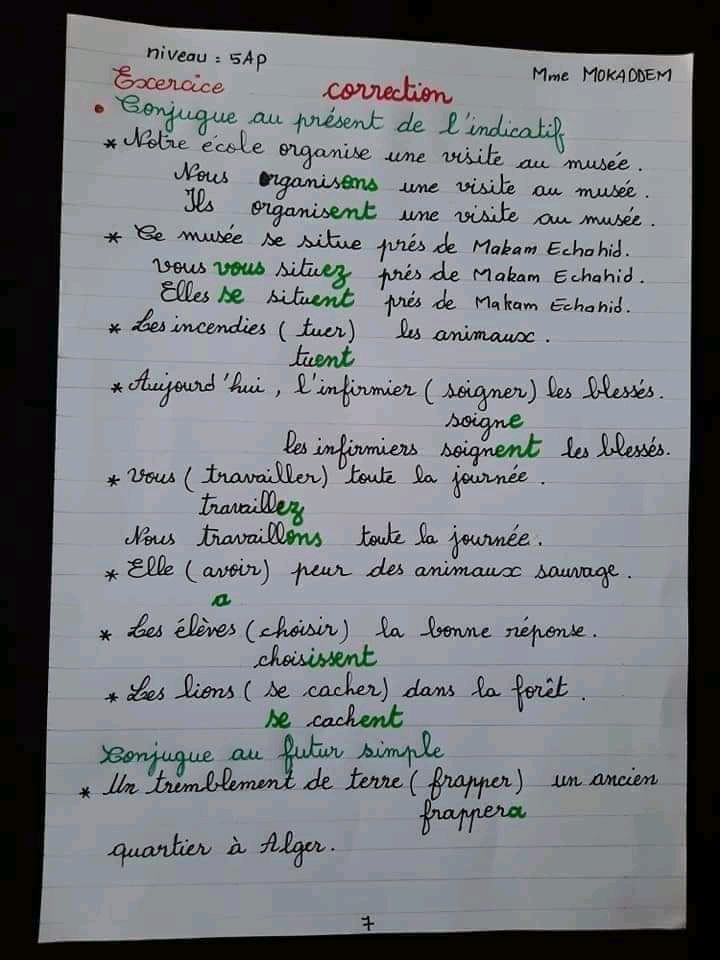 niveau : 5Ap
Mme MOKADDEM
Exercice correction
• Conjugue au présent de l'indicatif
* Notre école organise une visite au musée.
Nous organisons une visite au musée.
Ils organisent une visite au musée.
* Ce musée se situe prés de Makam Echahid.
Vous vous situez prés de Makam Echahid.
Elles se situent prés de Makam Echahid.
* Les incendies (tuer) les animaux.
tuent
* Aujourd'hui, l'infirmier (soigner) les blessés.
soigne
les infirmiers soignent les blessés.
* Vous (travailler) toute la journée.
travaillez
Nous travaillons toute la journée.
* Elle (avoir) peur des animaux sauvage.
a
* Les élèves (choisir) la bonne réponse.
choisissent
* Les lions (se cacher) dans la forêt.
se cachent
Conjugue au futur simple
* Un tremblement de terre (frapper) un ancien
frappera
quartier à Alger.
7